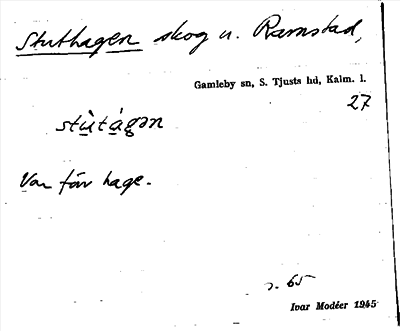 Stuthagen skog u. Ramstad,
Gamleby sn, S. Tjusts hd, Kalm. l.
27
stùtágən
Var förr hage.
s. 65
Ivar Modéer 1945